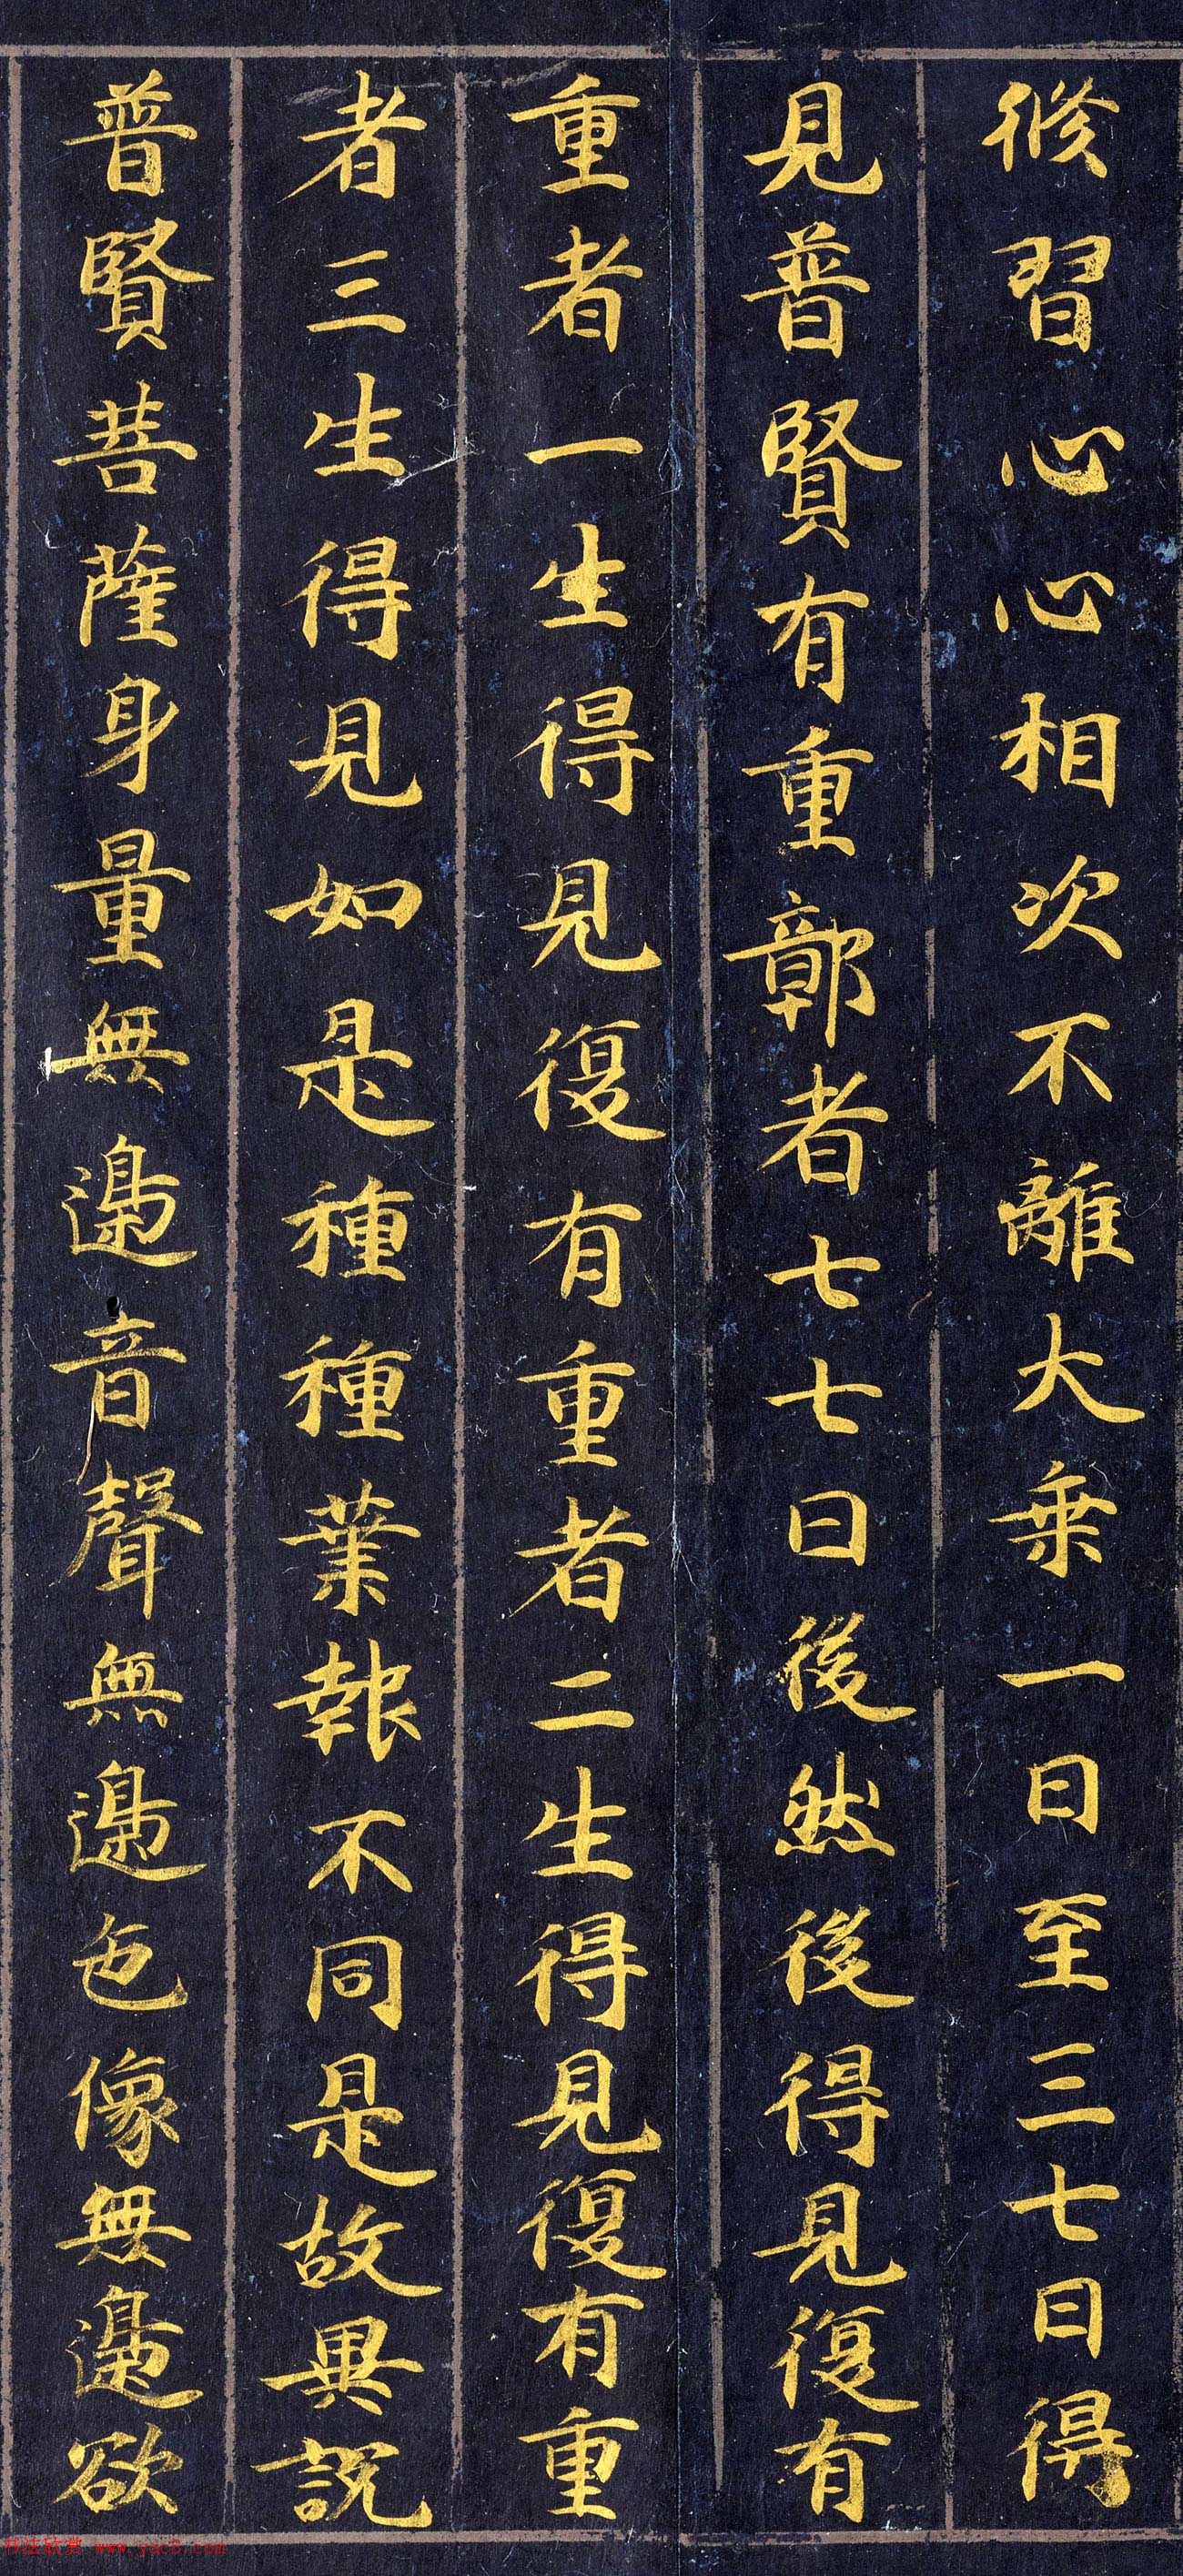 脩習心心相次不離大乗一日至三七日得
見普賢有重鄣者七七日後然後得見復有
重者一生得見復有重者二生得見復有重
者三生得見如是種種業報不同是故異説
普賢菩薩身量無邊音聲無邊色像無邊欲
书法欣赏 www.yac8.com